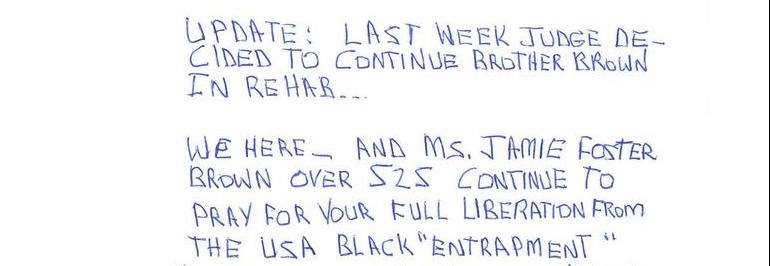 UPDATE: LAST WEEK JUDGE DE-
CIDED TO CONTINUE BROTHER BROWN
IN REHAB...
WE HERE - AND MS. JAMIE FOSTER
BROWN OVER S2S CONTINUE TO
PRAY FOR YOUR FULL LIBERATION FROM
THE USA BLACK "ENTRAPMENT"